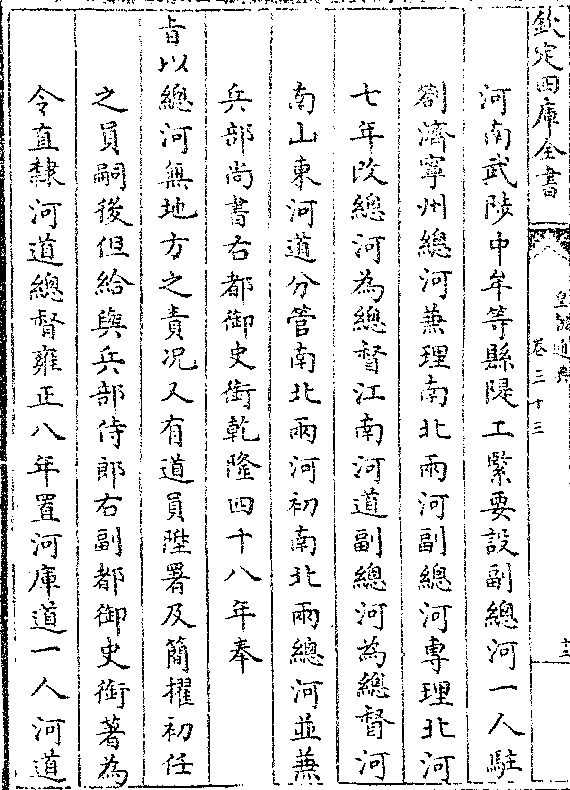 欽定四庫全書
皇朝通典
卷三十三
十二
河南武陟中牟等縣隄工緊要設副總河一人駐
劄濟寧州總河兼理南北兩河副總河專理北河
七年改總河為總督江南河道副總河為總督河
南山東河道分管南北兩河初南北兩總河並兼
兵部尚書右都御史銜乾隆四十八年奉
旨以總河無地方之責况又有道員陞署及簡擢初任
之員嗣後但給與兵部侍郎右副都御史銜著為
令直隸河道總督雍正八年置河庫道一人河道